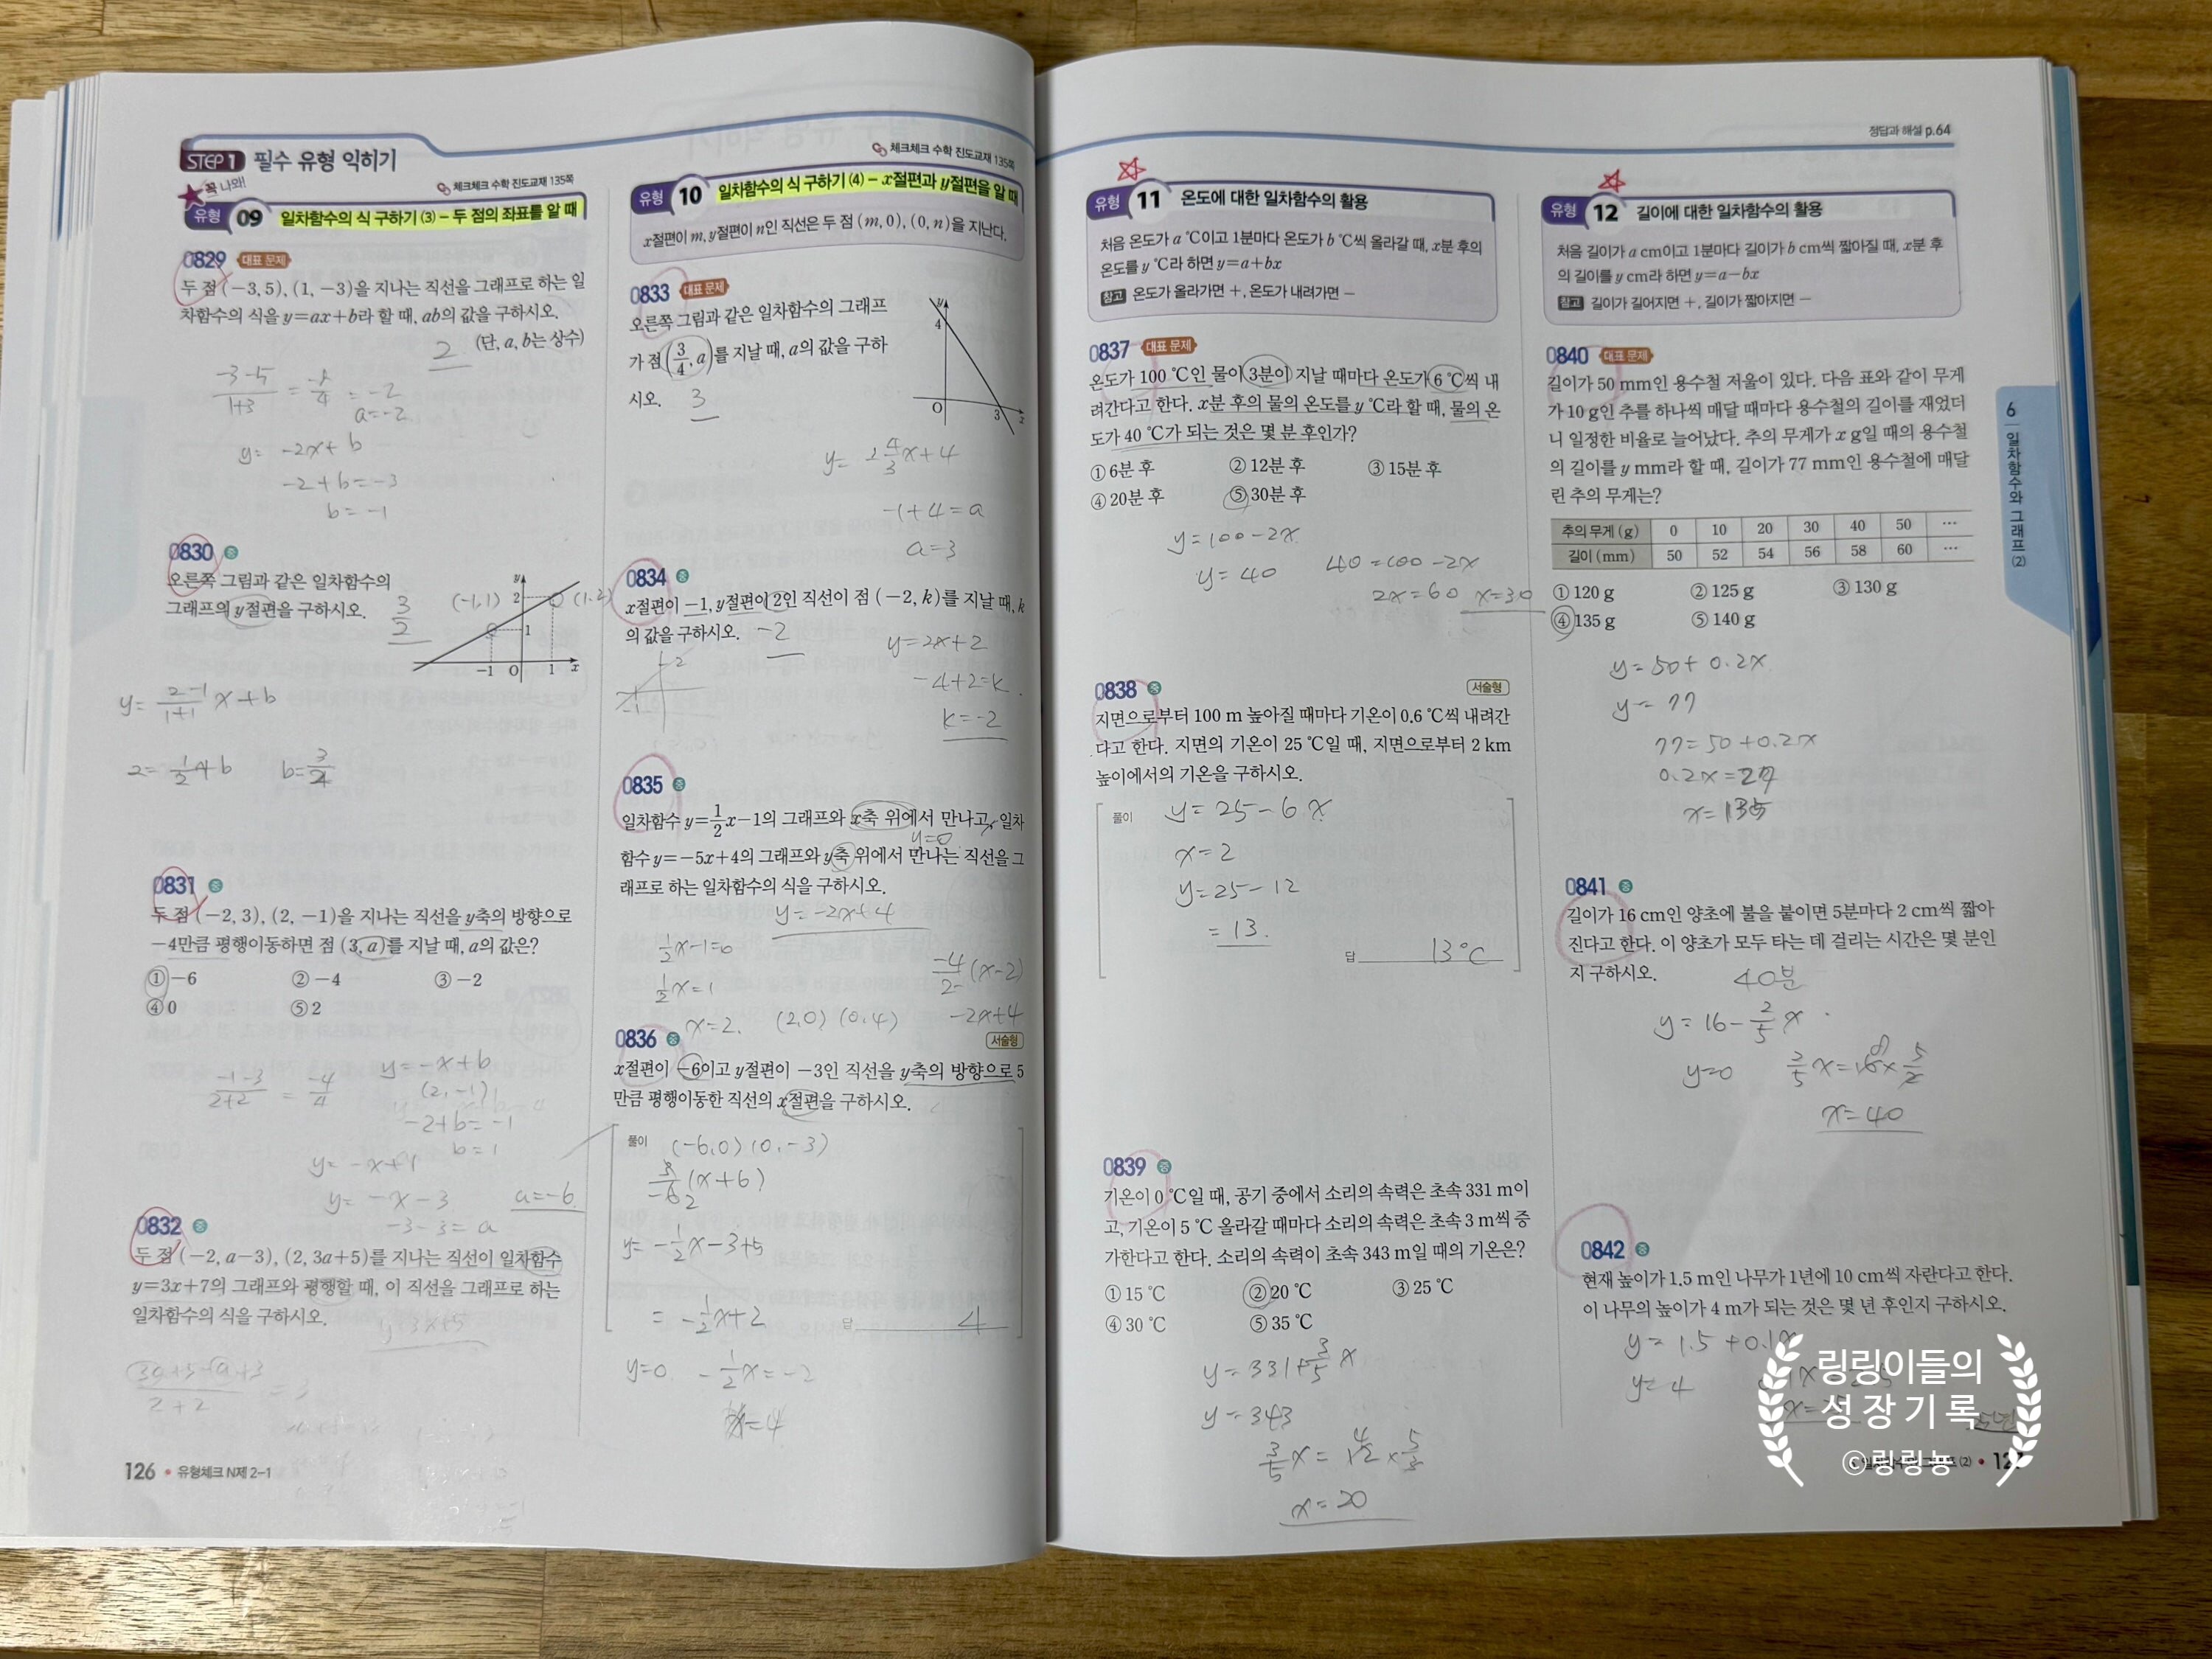 STEP 1 필수 유형 익히기
꼭 나와!
체크체크 수학 진도교재 135쪽
유형 09 일차함수의 식 구하기 (3) - 두 점의 좌표를 알 때
0829 대표 문제
두 점 (-3, 5), (1, -3)을 지나는 직선을 그래프로 하는 일
차함수의 식을 y=ax+b라 할 때, ab의 값을 구하시오.
(단, a, b는 상수)
2
-3-5/1+3 = -8/4 = -2
a=-2
y= -2x+b
-2+b=-3
b=-1
0830 중
오른쪽 그림과 같은 일차함수의
그래프의 y절편을 구하시오.
3/2
(-1,1)
(1,2)
y
2
1
-1 O 1 x
y= 2-1/1+1 x+b
0831 중
두 점 (-2, 3), (2, -1)을 지나는 직선을 y축의 방향으로
-4만큼 평행이동하면 점 (3, a)를 지날 때, a의 값은?
① -6 ② -4 ③ -2
④ 0 ⑤ 2
-1-3/2+2 = -4/4
y=-x+b
(2,-1)
-2+b=-1
b=1
y=-x+1
y= -x-3
-3-3=a
a=-6
0832 중
두 점 (-2, a-3), (2, 3a+5)를 지나는 직선이 일차함수
y=3x+7의 그래프와 평행할 때, 이 직선을 그래프로 하는
일차함수의 식을 구하시오.
y=3x+5
3a+5-a+3/2+2 = 3
126 • 유형체크 N제 2-1
체크체크 수학 진도교재 135쪽
유형 10 일차함수의 식 구하기 (4) - x절편과 y절편을 알 때
x절편이 m, y절편이 n인 직선은 두 점 (m, 0), (0, n)을 지난다.
0833 대표 문제
오른쪽 그림과 같은 일차함수의 그래프
가 점 (3/4, a)를 지날 때, a의 값을 구하
시오.
3
y
4
O 3 x
-1+4=a
a=3
0834 중
x절편이 -1, y절편이 2인 직선이 점 (-2, k)를 지날 때, k
의 값을 구하시오. -2
y=2x+2
-4+2=k
k=-2
2
-1
0835 중
일차함수 y=1/2x-1의 그래프와 x축 위에서 만나고, 일차
y=0
함수 y=-5x+4의 그래프와 y축 위에서 만나는 직선을 그
래프로 하는 일차함수의 식을 구하시오.
y=-2x+4
1/2x-1=0
1/2x=1
x=2. (2,0) (0,4)
-4/2(x-2)
-2x+4
0836 중 서술형
x절편이 -6이고 y절편이 -3인 직선을 y축의 방향으로 5
만큼 평행이동한 직선의 x절편을 구하시오.
풀이 (-6,0) (0,-3)
y=-1/2x-3+5
= -1/2x+2
답 4
y=0. -1/2x=-2
x=4
정답과 해설 p.64
유형 11 온도에 대한 일차함수의 활용
처음 온도가 a ℃이고 1분마다 온도가 b ℃씩 올라갈 때, x분 후의
온도를 y ℃라 하면 y=a+bx
참고 온도가 올라가면 +, 온도가 내려가면 -
0837 대표 문제
온도가 100 ℃인 물이 3분이 지날 때마다 온도가 6 ℃씩 내
려간다고 한다. x분 후의 물의 온도를 y ℃라 할 때, 물의 온
도가 40 ℃가 되는 것은 몇 분 후인가?
① 6분 후 ② 12분 후 ③ 15분 후
④ 20분 후 ⑤ 30분 후
y=100-2x
y=40 40=100-2x
2x=60 x=30
0838 중 서술형
지면으로부터 100 m 높아질 때마다 기온이 0.6 ℃씩 내려간
다고 한다. 지면의 기온이 25 ℃일 때, 지면으로부터 2 km
높이에서의 기온을 구하시오.
풀이 y=25-6x
x=2
y=25-12
=13.
답 13℃
0839 중
기온이 0 ℃일 때, 공기 중에서 소리의 속력은 초속 331 m이
고, 기온이 5 ℃ 올라갈 때마다 소리의 속력은 초속 3 m씩 증
가한다고 한다. 소리의 속력이 초속 343 m일 때의 기온은?
① 15 ℃ ② 20 ℃ ③ 25 ℃
④ 30 ℃ ⑤ 35 ℃
y=331+3/5x
y=343
3/5x=12×5/3
x=20
유형 12 길이에 대한 일차함수의 활용
처음 길이가 a cm이고 1분마다 길이가 b cm씩 짧아질 때, x분 후
의 길이를 y cm라 하면 y=a-bx
참고 길이가 길어지면 +, 길이가 짧아지면 -
0840 대표 문제
길이가 50 mm인 용수철 저울이 있다. 다음 표와 같이 무게
가 10 g인 추를 하나씩 매달 때마다 용수철의 길이를 재었더
니 일정한 비율로 늘어났다. 추의 무게가 x g일 때의 용수철
의 길이를 y mm라 할 때, 길이가 77 mm인 용수철에 매달
린 추의 무게는?
추의 무게 (g) 0 10 20 30 40 50 …
길이 (mm) 50 52 54 56 58 60 …
① 120 g ② 125 g ③ 130 g
④ 135 g ⑤ 140 g
y=50+0.2x
y=77
77=50+0.2x
0.2x=27
x=135
0841 중
길이가 16 cm인 양초에 불을 붙이면 5분마다 2 cm씩 짧아
진다고 한다. 이 양초가 모두 타는 데 걸리는 시간은 몇 분인
지 구하시오.
40분
y=16-2/5x
y=0 2/5x=16×5/2
x=40
0842 중
현재 높이가 1.5 m인 나무가 1년에 10 cm씩 자란다고 한다.
이 나무의 높이가 4 m가 되는 것은 몇 년 후인지 구하시오.
y=1.5+0.1x
y=4
6 일차함수와 그래프 (2)
링링이들의
성장기록
©링링농